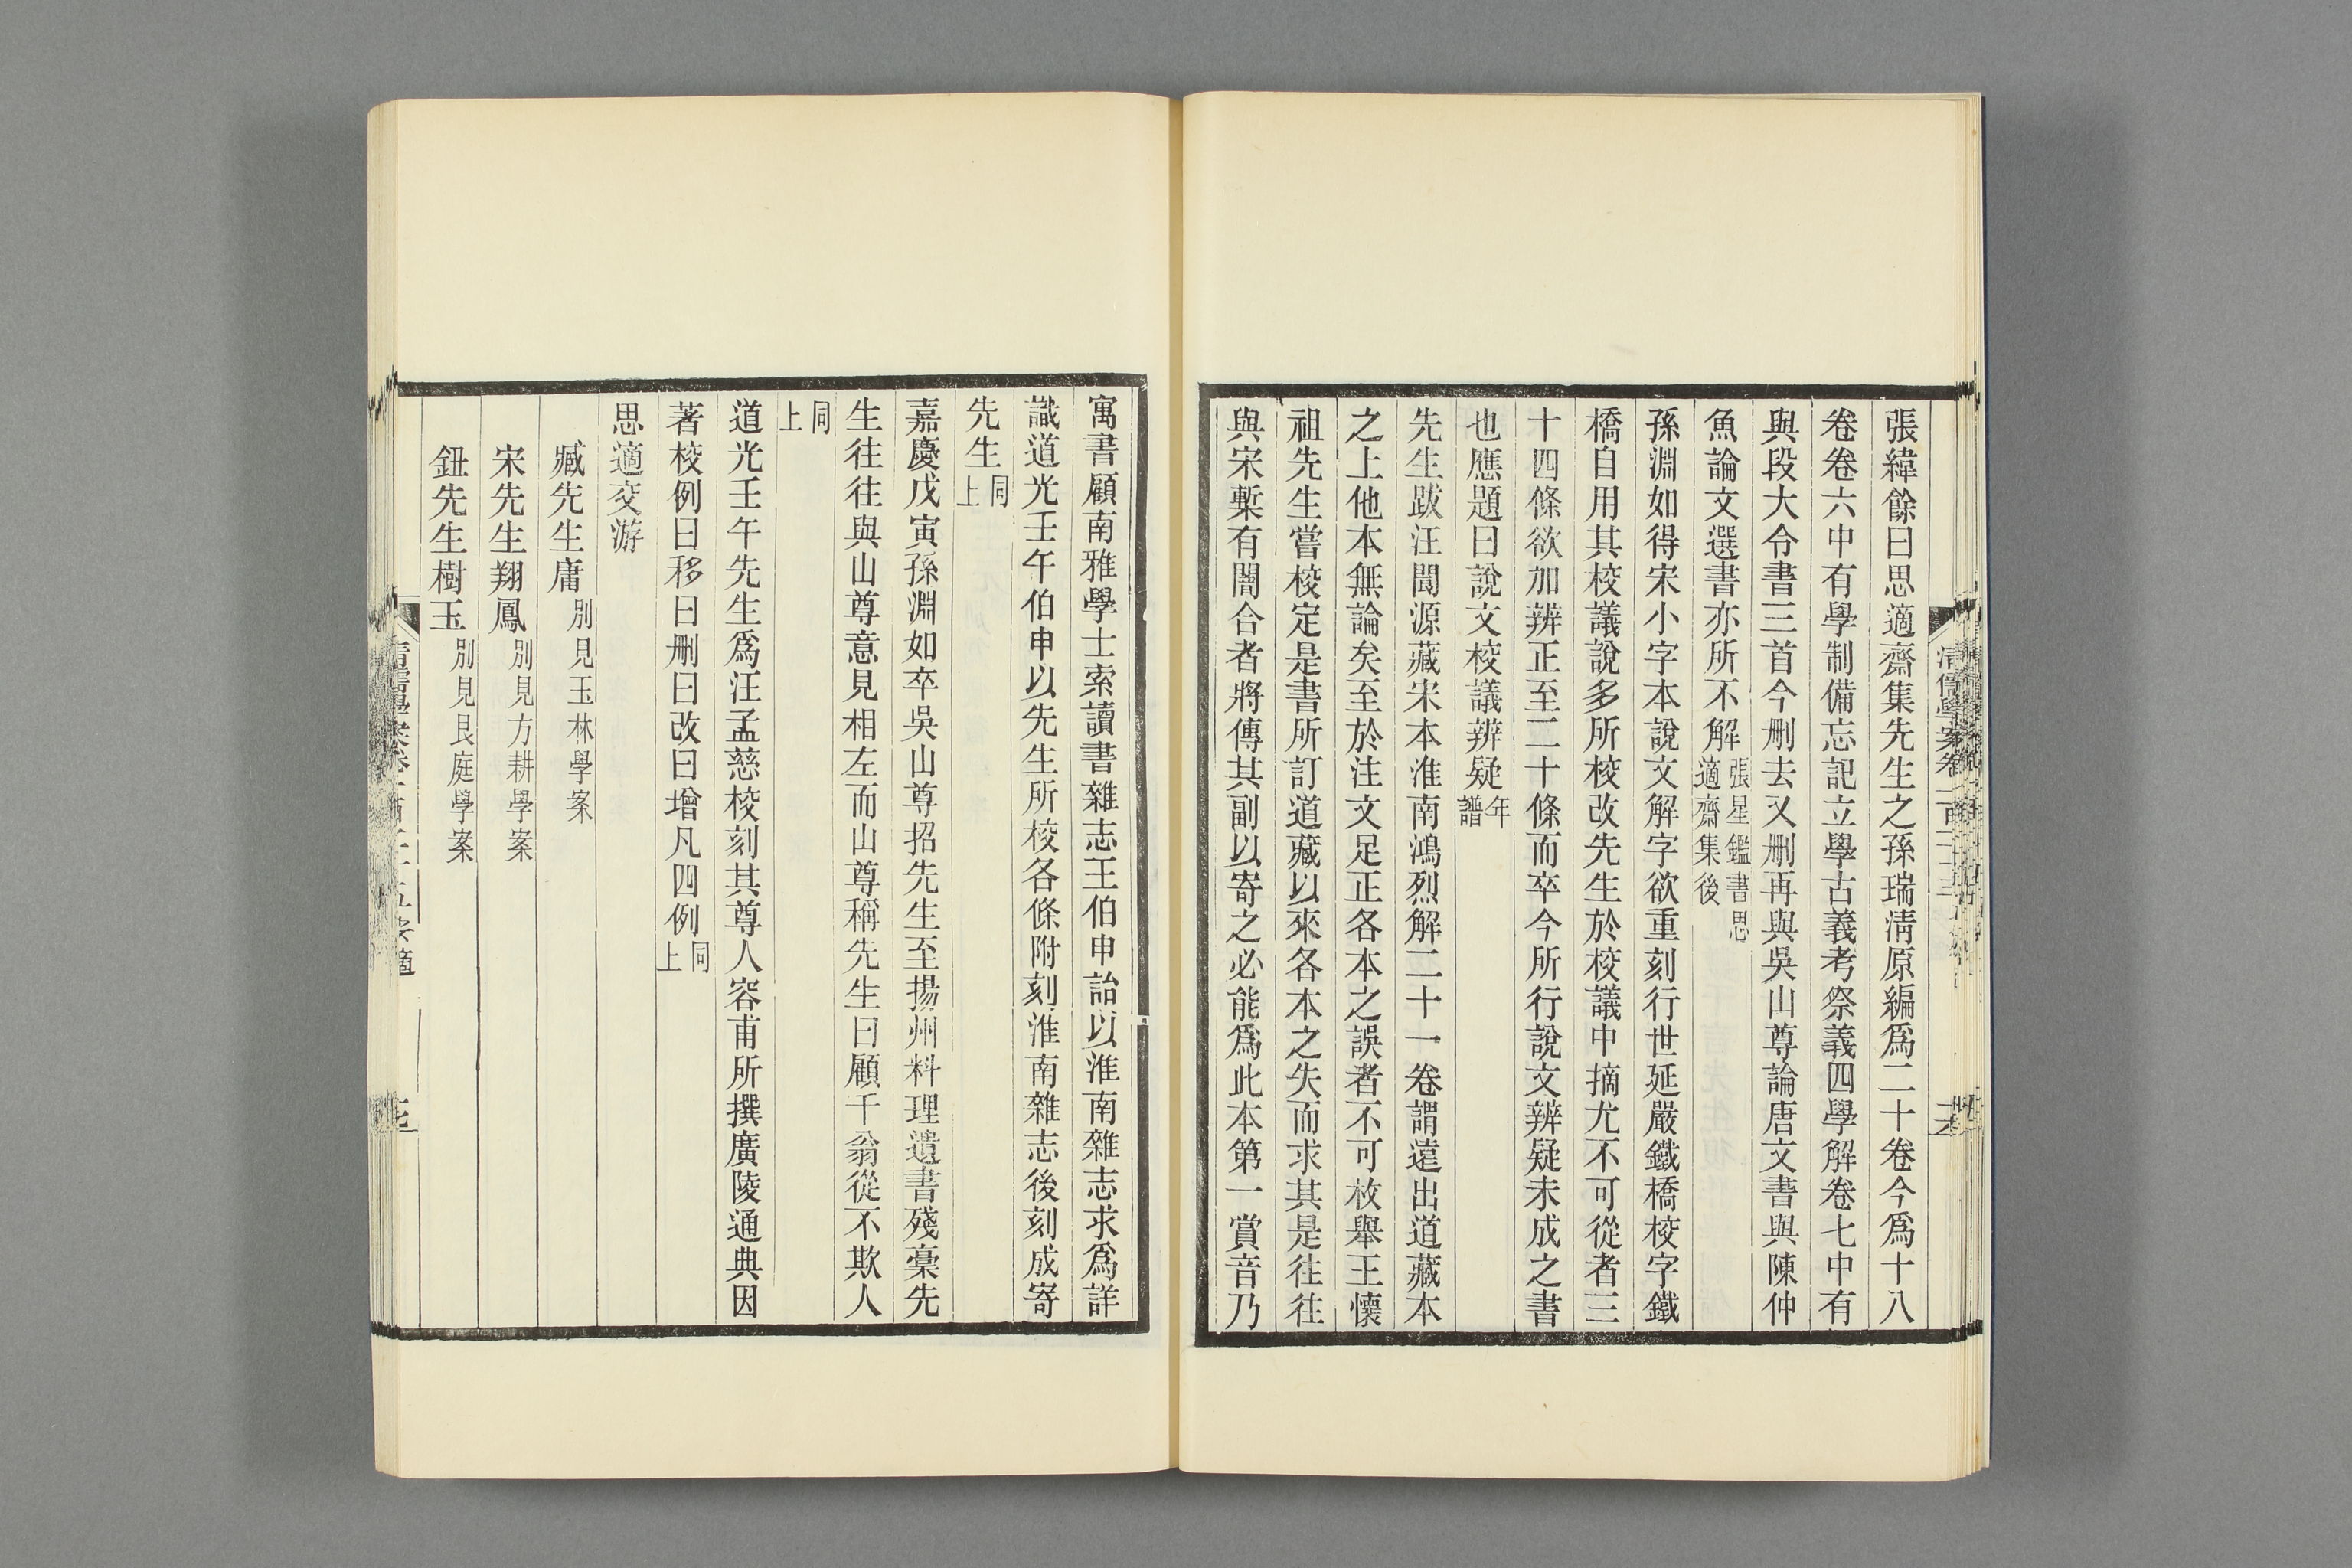 張緯餘曰思適齋集先生之孫瑞清原編爲二十卷今爲十八
卷卷六中有學制備忘記立學古義考祭義四學解卷七中有
與段大令書三首今刪去又刪再與吳山尊論唐文書與陳仲
魚論文選書亦所不解張星鑑書思適齋集後
孫淵如得宋小字本說文解字欲重刻行世延嚴鐵橋校字鐵
橋自用其校議說多所校改先生於校議中摘尤不可從者三
十四條欲加辨正至二十條而卒今所行說文辨疑未成之書
也應題曰說文校議辨疑年譜
先生跋汪閬源藏宋本淮南鴻烈解二十一卷謂遠出道藏本
之上他本無論矣至於注文足正各本之誤者不可枚舉王懷
祖先生嘗校定是書所訂道藏以來各本之失而求其是往往
與宋槧有闇合者將傳其副以寄之必能爲此本第一賞音乃
寓書顧南雅學士索讀書雜志王伯申詒以淮南雜志求爲詳
識道光壬午伯申以先生所校各條附刻淮南雜志後刻成寄
先生同上
嘉慶戊寅孫淵如卒吳山尊招先生至揚州料理遺書殘稾先
生往往與山尊意見相左而山尊稱先生曰顧千翁從不欺人
同上
道光壬午先生爲汪孟慈校刻其尊人容甫所撰廣陵通典因
著校例曰移曰刪曰改曰增凡四例同上
思適交游
臧先生庸別見玉林學案
宋先生翔鳳別見方耕學案
鈕先生樹玉別見艮庭學案